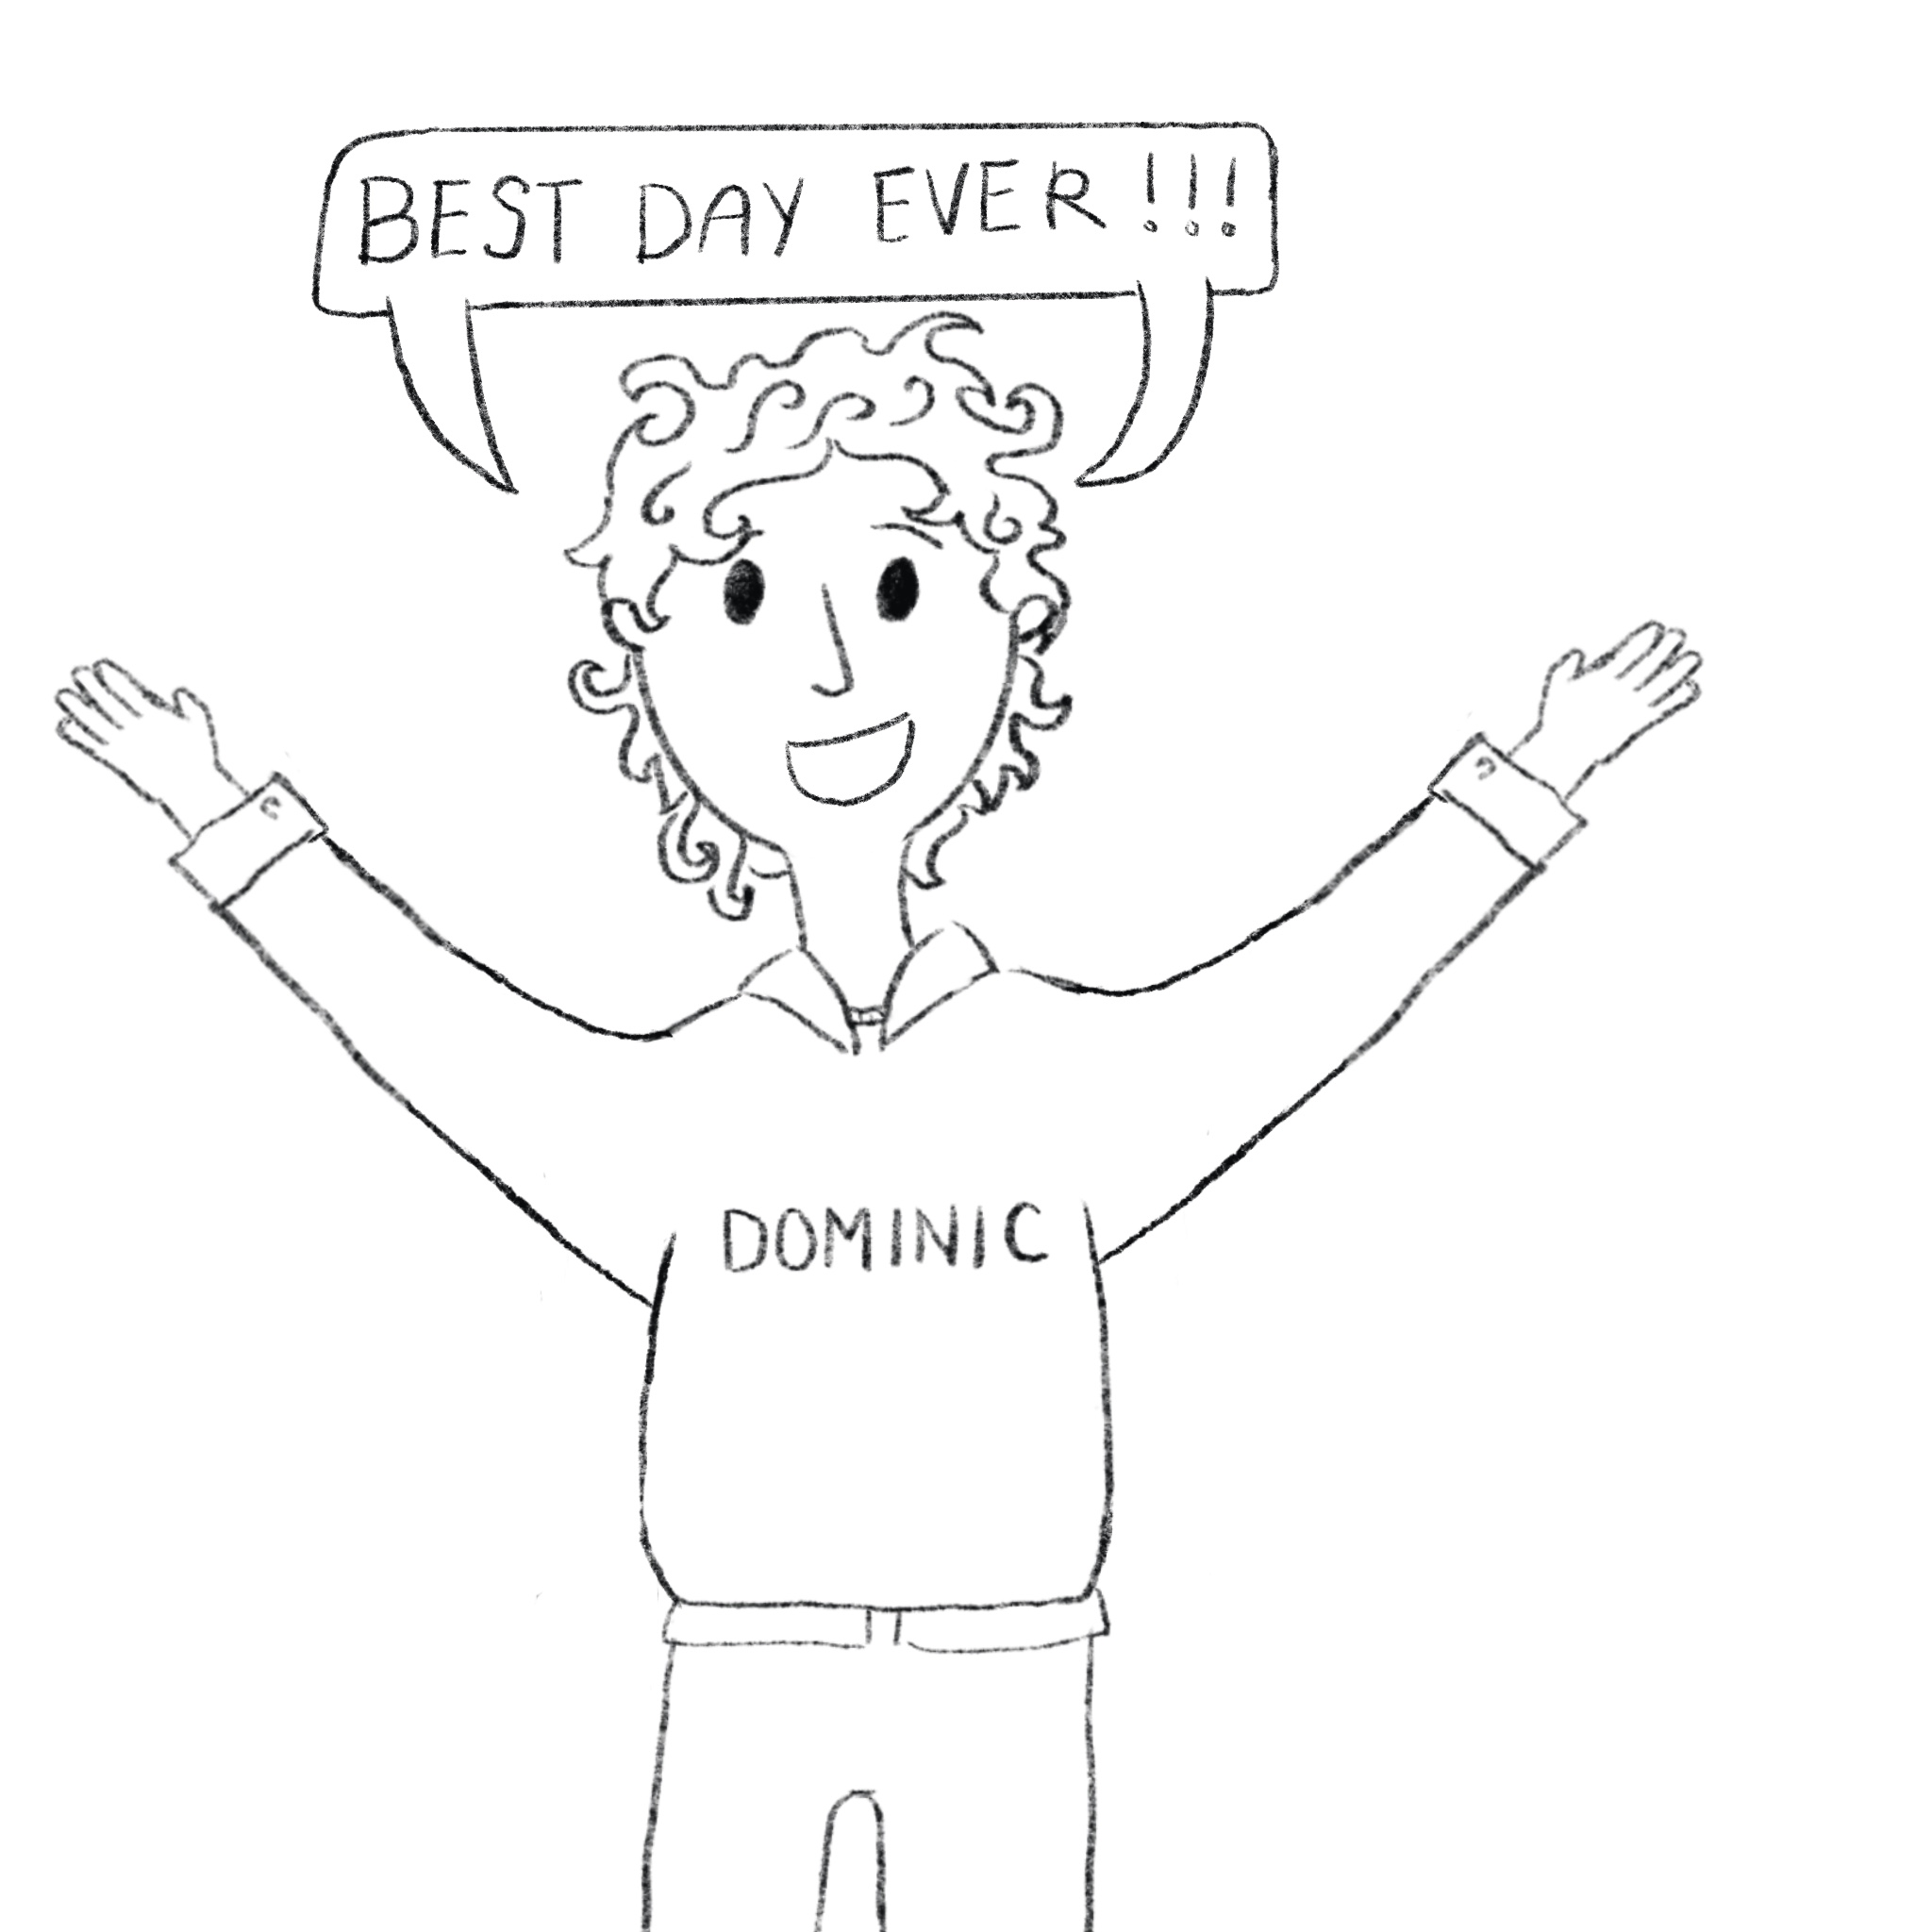 BEST DAY EVER!!!
DOMINIC